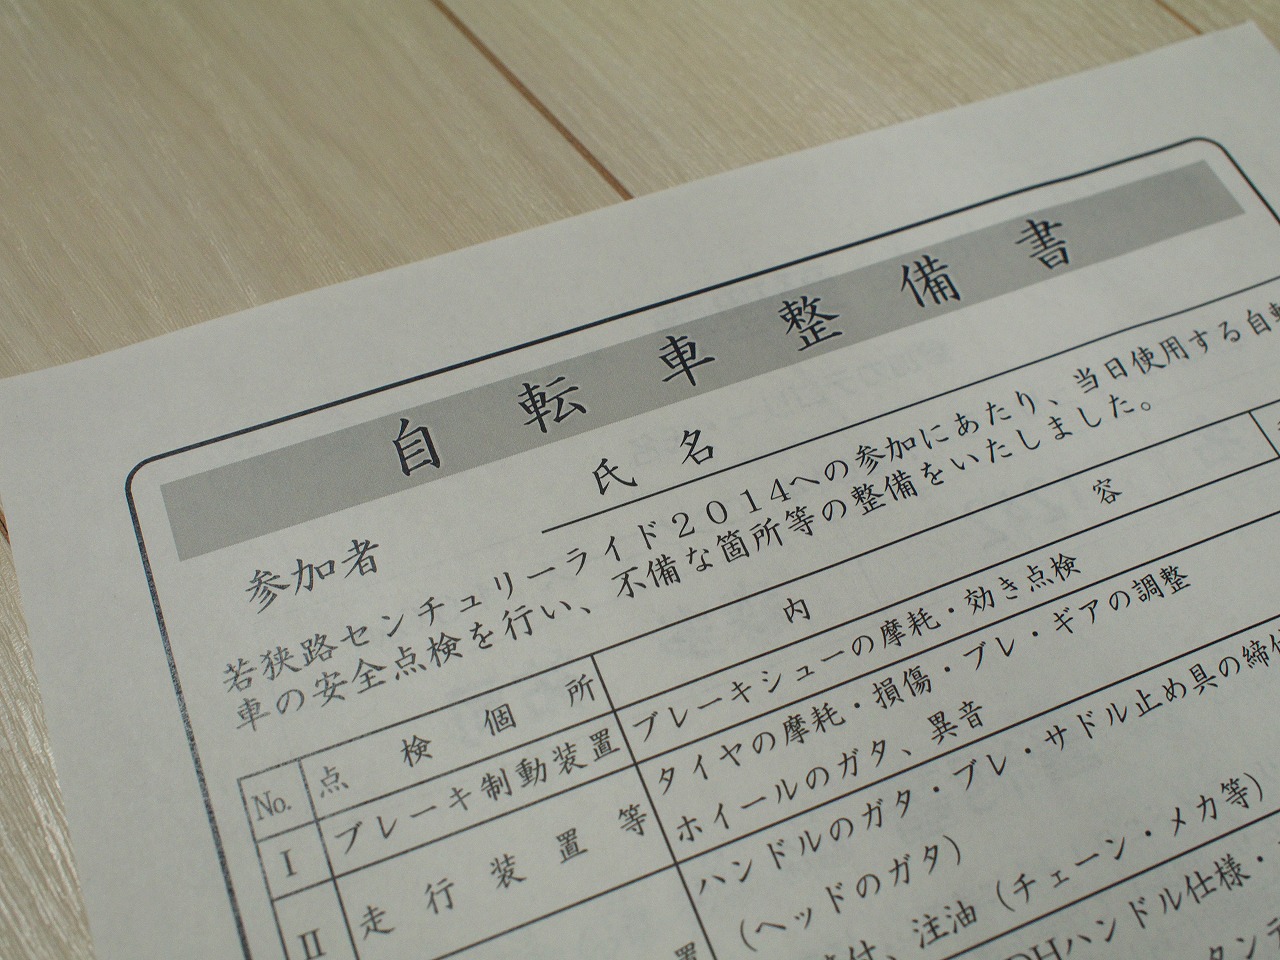 自転車整備書
参加者 氏名
若狭路センチュリーライド2014への参加にあたり、当日使用する自転
車の安全点検を行い、不備な箇所等の整備をいたしました。
No. 点検個所 内容
I ブレーキ制動装置 ブレーキシューの摩耗・効き点検
II 走行装置等 タイヤの摩耗・損傷・ブレ・ギアの調整
ホイールのガタ、異音
ハンドルのガタ・ブレ・サドル止め具の締付
(ヘッドのガタ)
付、注油(チェーン・メカ等)
DHハンドル仕様・
置
タンデ